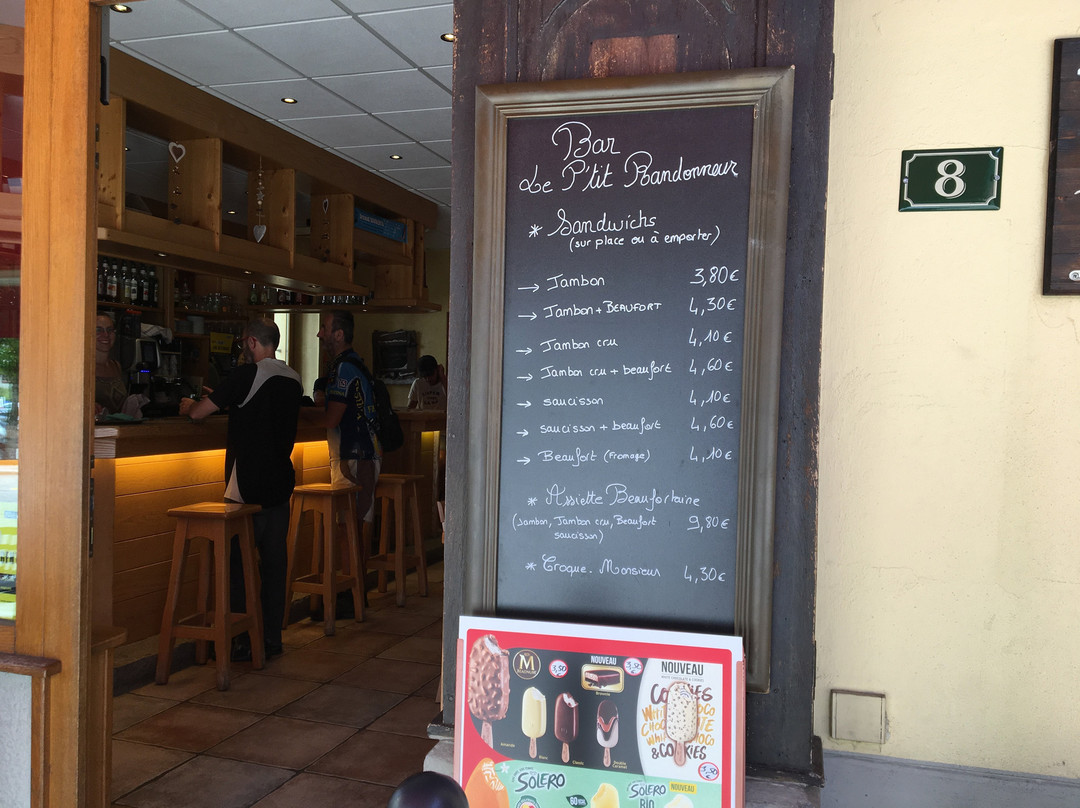 Bar
Le P'tit Randonneur
* Sandwichs
(sur place ou à emporter)
→ Jambon 3,80€
→ Jambon + BEAUFORT 4,30€
→ Jambon cru 4,10€
→ Jambon cru + beaufort 4,60€
→ saucisson 4,10€
→ saucisson + beaufort 4,60€
→ Beaufort (Fromage) 4,10€
* Assiette Beaufortaine
(Jambon, Jambon cru, Beaufort 9,80€
saucisson)
* Croque-Monsieur 4,30€
8
M
3,50
NOUVEAU
3,50€
NOUVEAU
COOKIES
& COOKIES
Double
Caramel
3,50
SOLERO
SOLERO
BIO
NOUVEAU